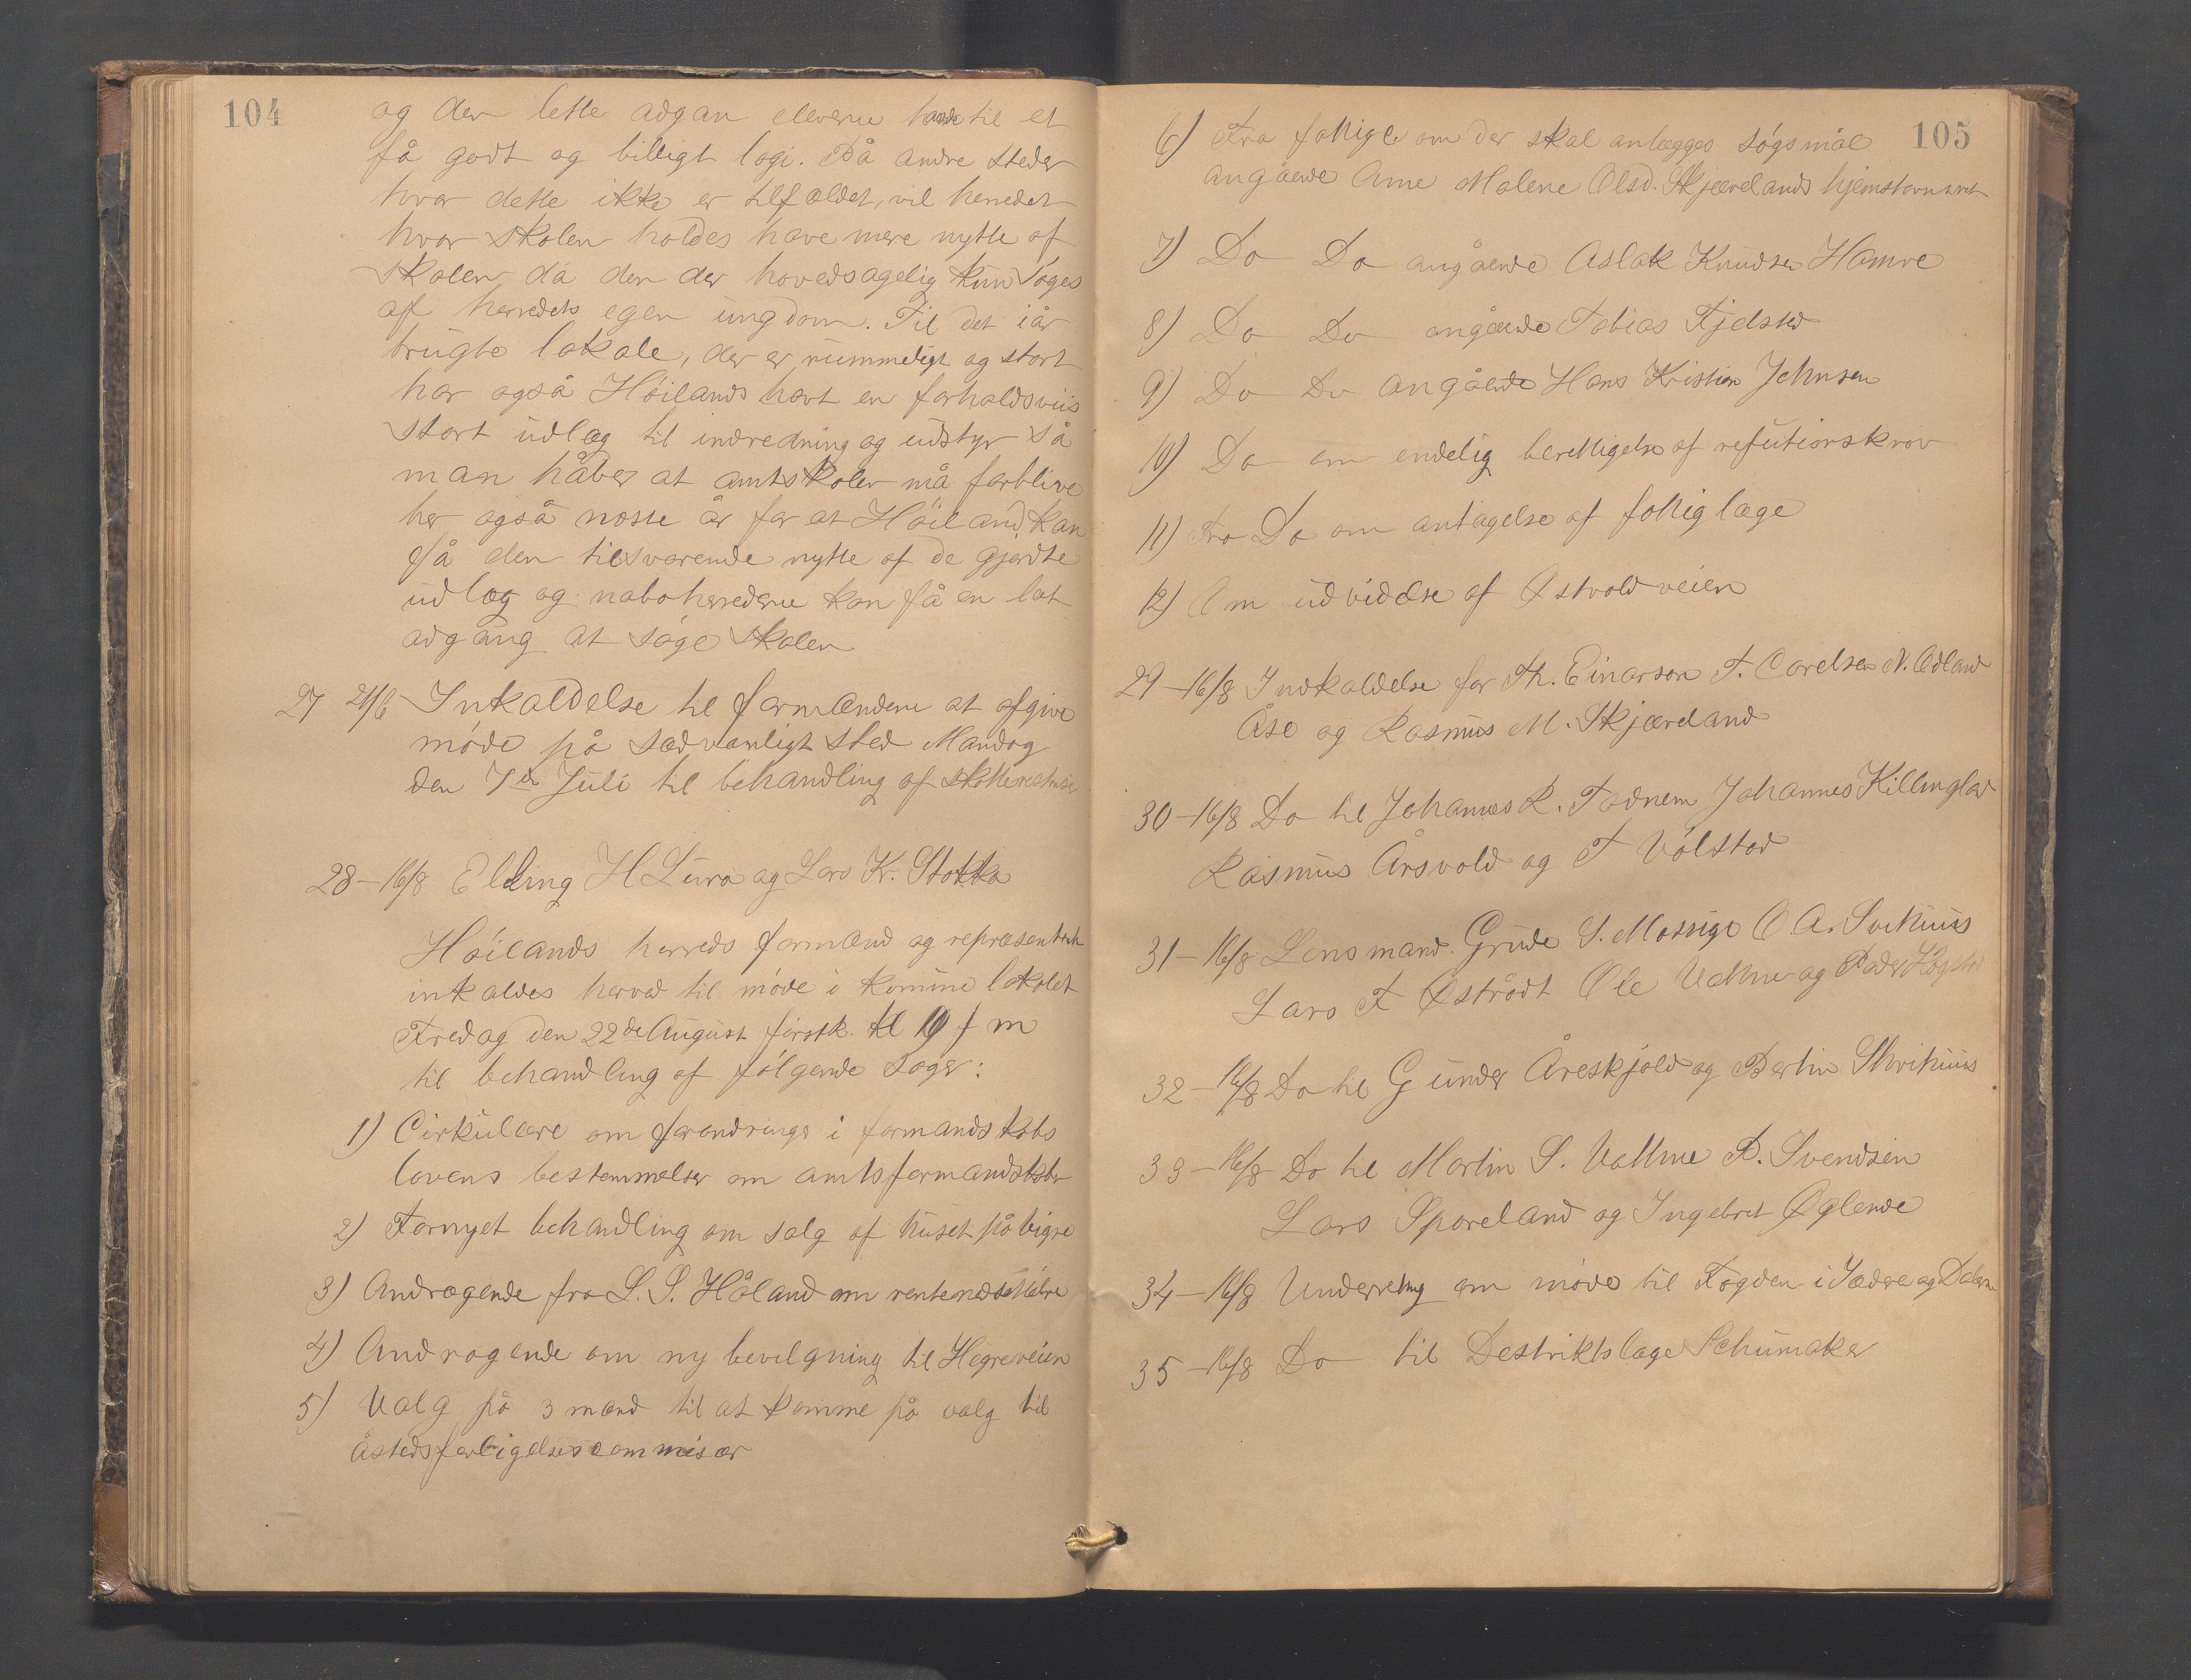 104
og den lette adgan eleverne havde til et
få godt og billigt logi. På andre steder
hvor dette ikke er tilfældet, vil herredet
hvor skolen holdes have mere nytte af
skolen da den der hovedsagelig kun søges
af herredets egen ungdom. Til det iår
brugte lokale, der er rummeligt og stort
har også Höilands havt en forholdsviis
stort udlæg til indredning og udstyr så
man håber at amtskolen må forblive
her også næste år for at Höiland kan
få den tilsvarende nytte af de gjordte
udlæg og naboherrederne kan få en let
adgang at søge skolen
27 21/6 Inkaldelse til formændene at afgive
møde på sædvanligt sted Mandag
den 7de Juli til behandling af
28 - 16/8 Elling H Lura og Lars Kr. Stokka
Höilands herreds formænd og repræsentanter
inkaldes herved til møde i komune lokalet
Fredag den 22de August førstk. kl 10 f m
til behandling af følgende sager:
1) Cirkulære om forandringer i formandskabs
lovens bestemmelser om amtsformandskabet
2) Fornyet behandling om salg af huset på
3) Andragende fra L. S. Håland om rentenedsættelse
4) Andragende om ny bevilgning til Hegreveien
5) Valg på 3 mænd til at komme på valg til
åstedsforligelsescommisær
105
6) Fra fattigc om der skal anlægges søgsmål
angående Ane Malene Olsd. Skjævelands hjemstavnsret
7) Do Do angående Aslak Knudsen Hamre
8) Do Do angående Tobias Fjelsted
9) Do Do angående Hans Kristian Johnsen
10) Do om endelig berettigelse af refutionskrav
11) Fra Do om antagelse af fattiglæge
12) Om udvidelse af Østvoldveien
29 - 16/8 Indkaldelse for Th. Einarsen T. Carelsen N. Ødland
Åse og Rasmus M. Skjæveland
30 - 16/8 Do til Johannes R. Tadnem Johannes Killinglad
Rasmus Årsvold og T Vølstad
31 - 16/8 Lensmand Grude S. Mossige O A. Svihuus
Lars T Østrådt Ole Vatne og Peder Høgstad
32 - 16/8 Do til Gunder Åreskjold og Bertin Skrihuus
33 - 16/8 Do til Martin S. Vatne P. Svendsen
Lars Sporeland og Ingebret Øglende
34 - 16/8 Underretng om møde til Fogden i Jædere og Dalen
35 - 16/8 Do til Destriktslæge Schumaker